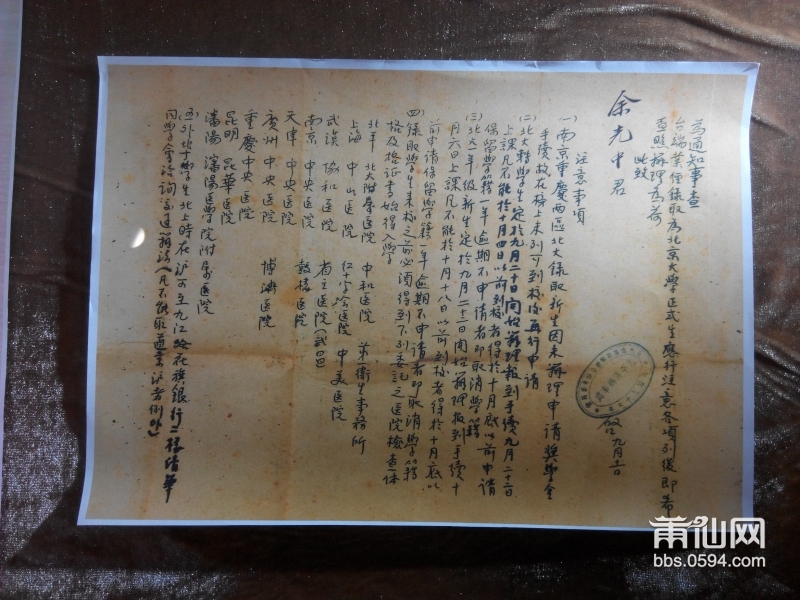 為通知事查
台端業經錄取為北京大學正式生應行注意各項列後即希
查照辦理為荷
此致
余光中君
啓 九月
注意事項
(一)南京重慶兩區北大錄取新生因未辦理申請獎學金
手續故在榜上未列可到校後再行申請
(二)北大轉學生定於九月二十日開始辦理報到手續九月二十二日
上課凡不能於十月四日以前到校者得於十月底以前申請
保留學籍一年逾期不申請者即取消學籍
(三)北大一年級新生定於九月二十二日開始辦理報到手續十
月六日上課凡不能於十月十八日以前到校者得於十月底以
前申請保留學籍一年逾期不申請者即取消學籍
(四)錄取學生來校之前必須得到下列委託之医院檢查体
格及格証書始得入學
北平 北大附屬医院 中和医院 第 衛生事務所
上海 中山医院 红十字会医院 中美医院
武漢 協和医院 省立医院(武昌)
南京 中央医院 鼓樓医院
天津 中央医院
廣州 中央医院 博濟医院
重慶 中央医院
昆明 昆華医院
瀋陽 瀋陽医學院附屬医院
(五)外北 學生北上時在沪可至九江路花旗銀行二樓清華
同學會洽詢 辦法(凡不能取道 沪者例外)
莆仙网
bbs.0594.com